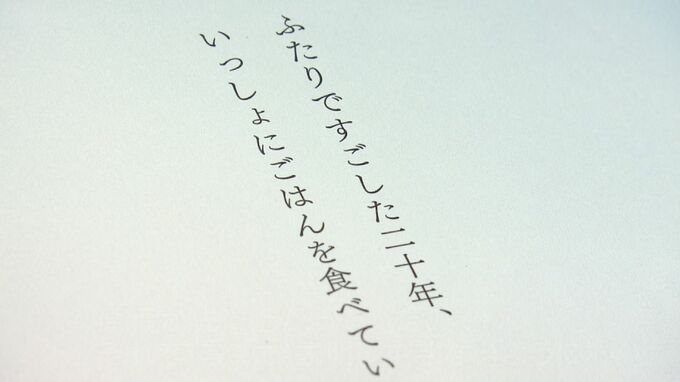 ふたりですごした二十年、
いっしょにごはんを食べてい